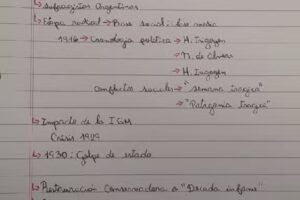 ↳ Sufragistas Argentinas
↳ Etapa radical → Base social: clase media
1916 → Cronología política → H. Irigoyen
→ M. de Alvear
→ H. Irigoyen
Conflictos sociales → "Semana trágica"
→ "Patagonia trágica"
↳ Impacto de la I GM
Crisis 1929
↳ 1930: Golpe de estado
↳ Restauración Conservadora o "Decada infame"